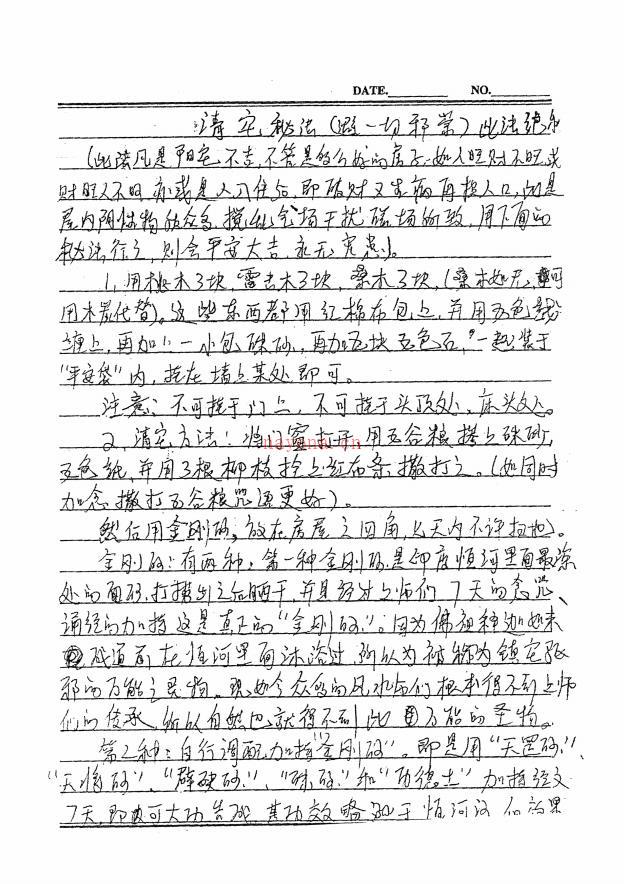 DATE. NO.
清宅秘法（避一切邪祟）此法绝
（此法凡是阳宅不吉，不管是多么好的房子，如人旺财不旺或
财旺人不旺，亦或是人刚住后，即破财又生病再损人口，的是
屋内阴性物的众多，搅乱气场干扰磁场所致，用下面的
秘法行之，则会平安大吉，永无灾患）。
1，用桃木3块，雷击木3块，桑木3块，（桑木如无，可
用木炭代替）。这些东西都用红棉布包上，并用五色线
缠上，再加上一小包硃砂，再加五块五色石，一起装于
"平安袋"内，挂在墙上某处即可。
注意：不可挂于门上，不可挂于头顶处、床头处。
2，清宅方法：将门窗打开，用五谷粮拌上硃砂，
五色纸，并用3根柳枝拴上红布条撒打之。（如同时
加念撒打五谷粮咒语更好）。
然后用金刚砂，放在房屋之四角，七天内不许扫地）。
金刚砂：有两种，第一种金刚砂是印度恒河里面最深
处的面砂，打捞出之后晒干，并且经过上师们7天的念咒、
诵经的加持这是真正的"金刚砂"。因为佛祖释迦如来
成道前在恒河里面沐浴过，所以为被称为镇宅驱
邪的万能之灵物。现如今众多的风水师们根本得不到上师
们的传承，所以自然也就得不到此万能的圣物。
第2种：自行调配加持"金刚砂"。即是用"天罡砂"、
"天将砂"、"辟破砂"、"硃砂"和"功德土"加持经文
7天，即可大功告成，其功效略弱于恒河沙的效果